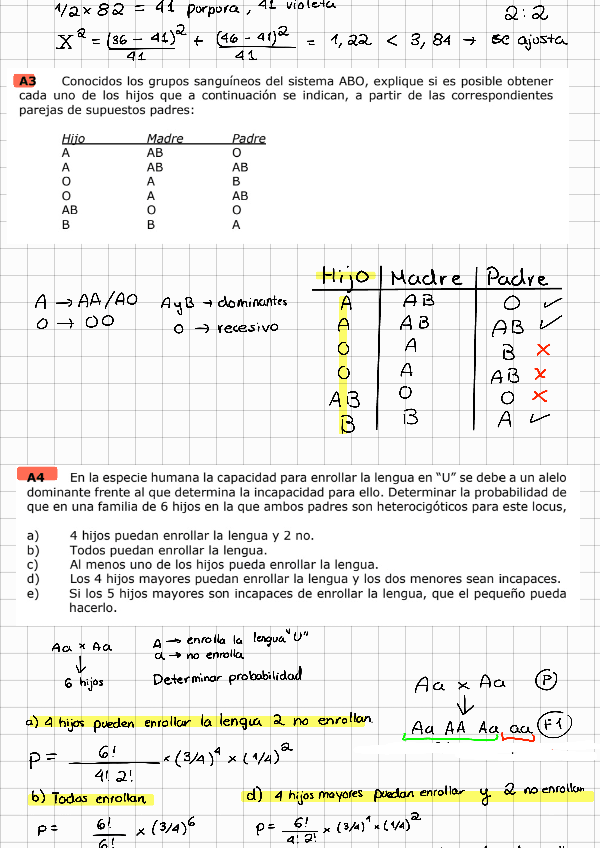 1/2 x 82 = 41 porpora, 41 violeta
2:2
X² = (36 - 41)²/41 + (46 - 41)²/41 = 1,22 < 3,84 → se ajusta
A3 Conocidos los grupos sanguíneos del sistema ABO, explique si es posible obtener
cada uno de los hijos que a continuación se indican, a partir de las correspondientes
parejas de supuestos padres:
Hijo Madre Padre
A AB O
A AB AB
O A B
O A AB
AB O O
B B A
A → AA/AO AyB → dominantes
O → OO O → recesivo
Hijo Madre Padre
A AB O ✓
A AB AB ✓
O A B ×
O A AB ×
AB O O ×
B B A ✓
A4 En la especie humana la capacidad para enrollar la lengua en “U” se debe a un alelo
dominante frente al que determina la incapacidad para ello. Determinar la probabilidad de
que en una familia de 6 hijos en la que ambos padres son heterocigóticos para este locus,
a) 4 hijos puedan enrollar la lengua y 2 no.
b) Todos puedan enrollar la lengua.
c) Al menos uno de los hijos pueda enrollar la lengua.
d) Los 4 hijos mayores puedan enrollar la lengua y los dos menores sean incapaces.
e) Si los 5 hijos mayores son incapaces de enrollar la lengua, que el pequeño pueda
hacerlo.
Aa × Aa
↓
6 hijos
A → enrolla la lengua "U"
a → no enrolla
Determinar probabilidad
Aa × Aa (P)
↓
Aa AA Aa, aa (F1)
a) 4 hijos pueden enrollar la lengua 2 no enrollan
P = 6!/4! 2! × (3/4)⁴ × (1/4)²
b) Todos enrollan
P = 6!/6! × (3/4)⁶
d) 4 hijos mayores puedan enrollar y 2 no enrollan
P = 6!/4! 2! × (3/4)⁴ × (1/4)²